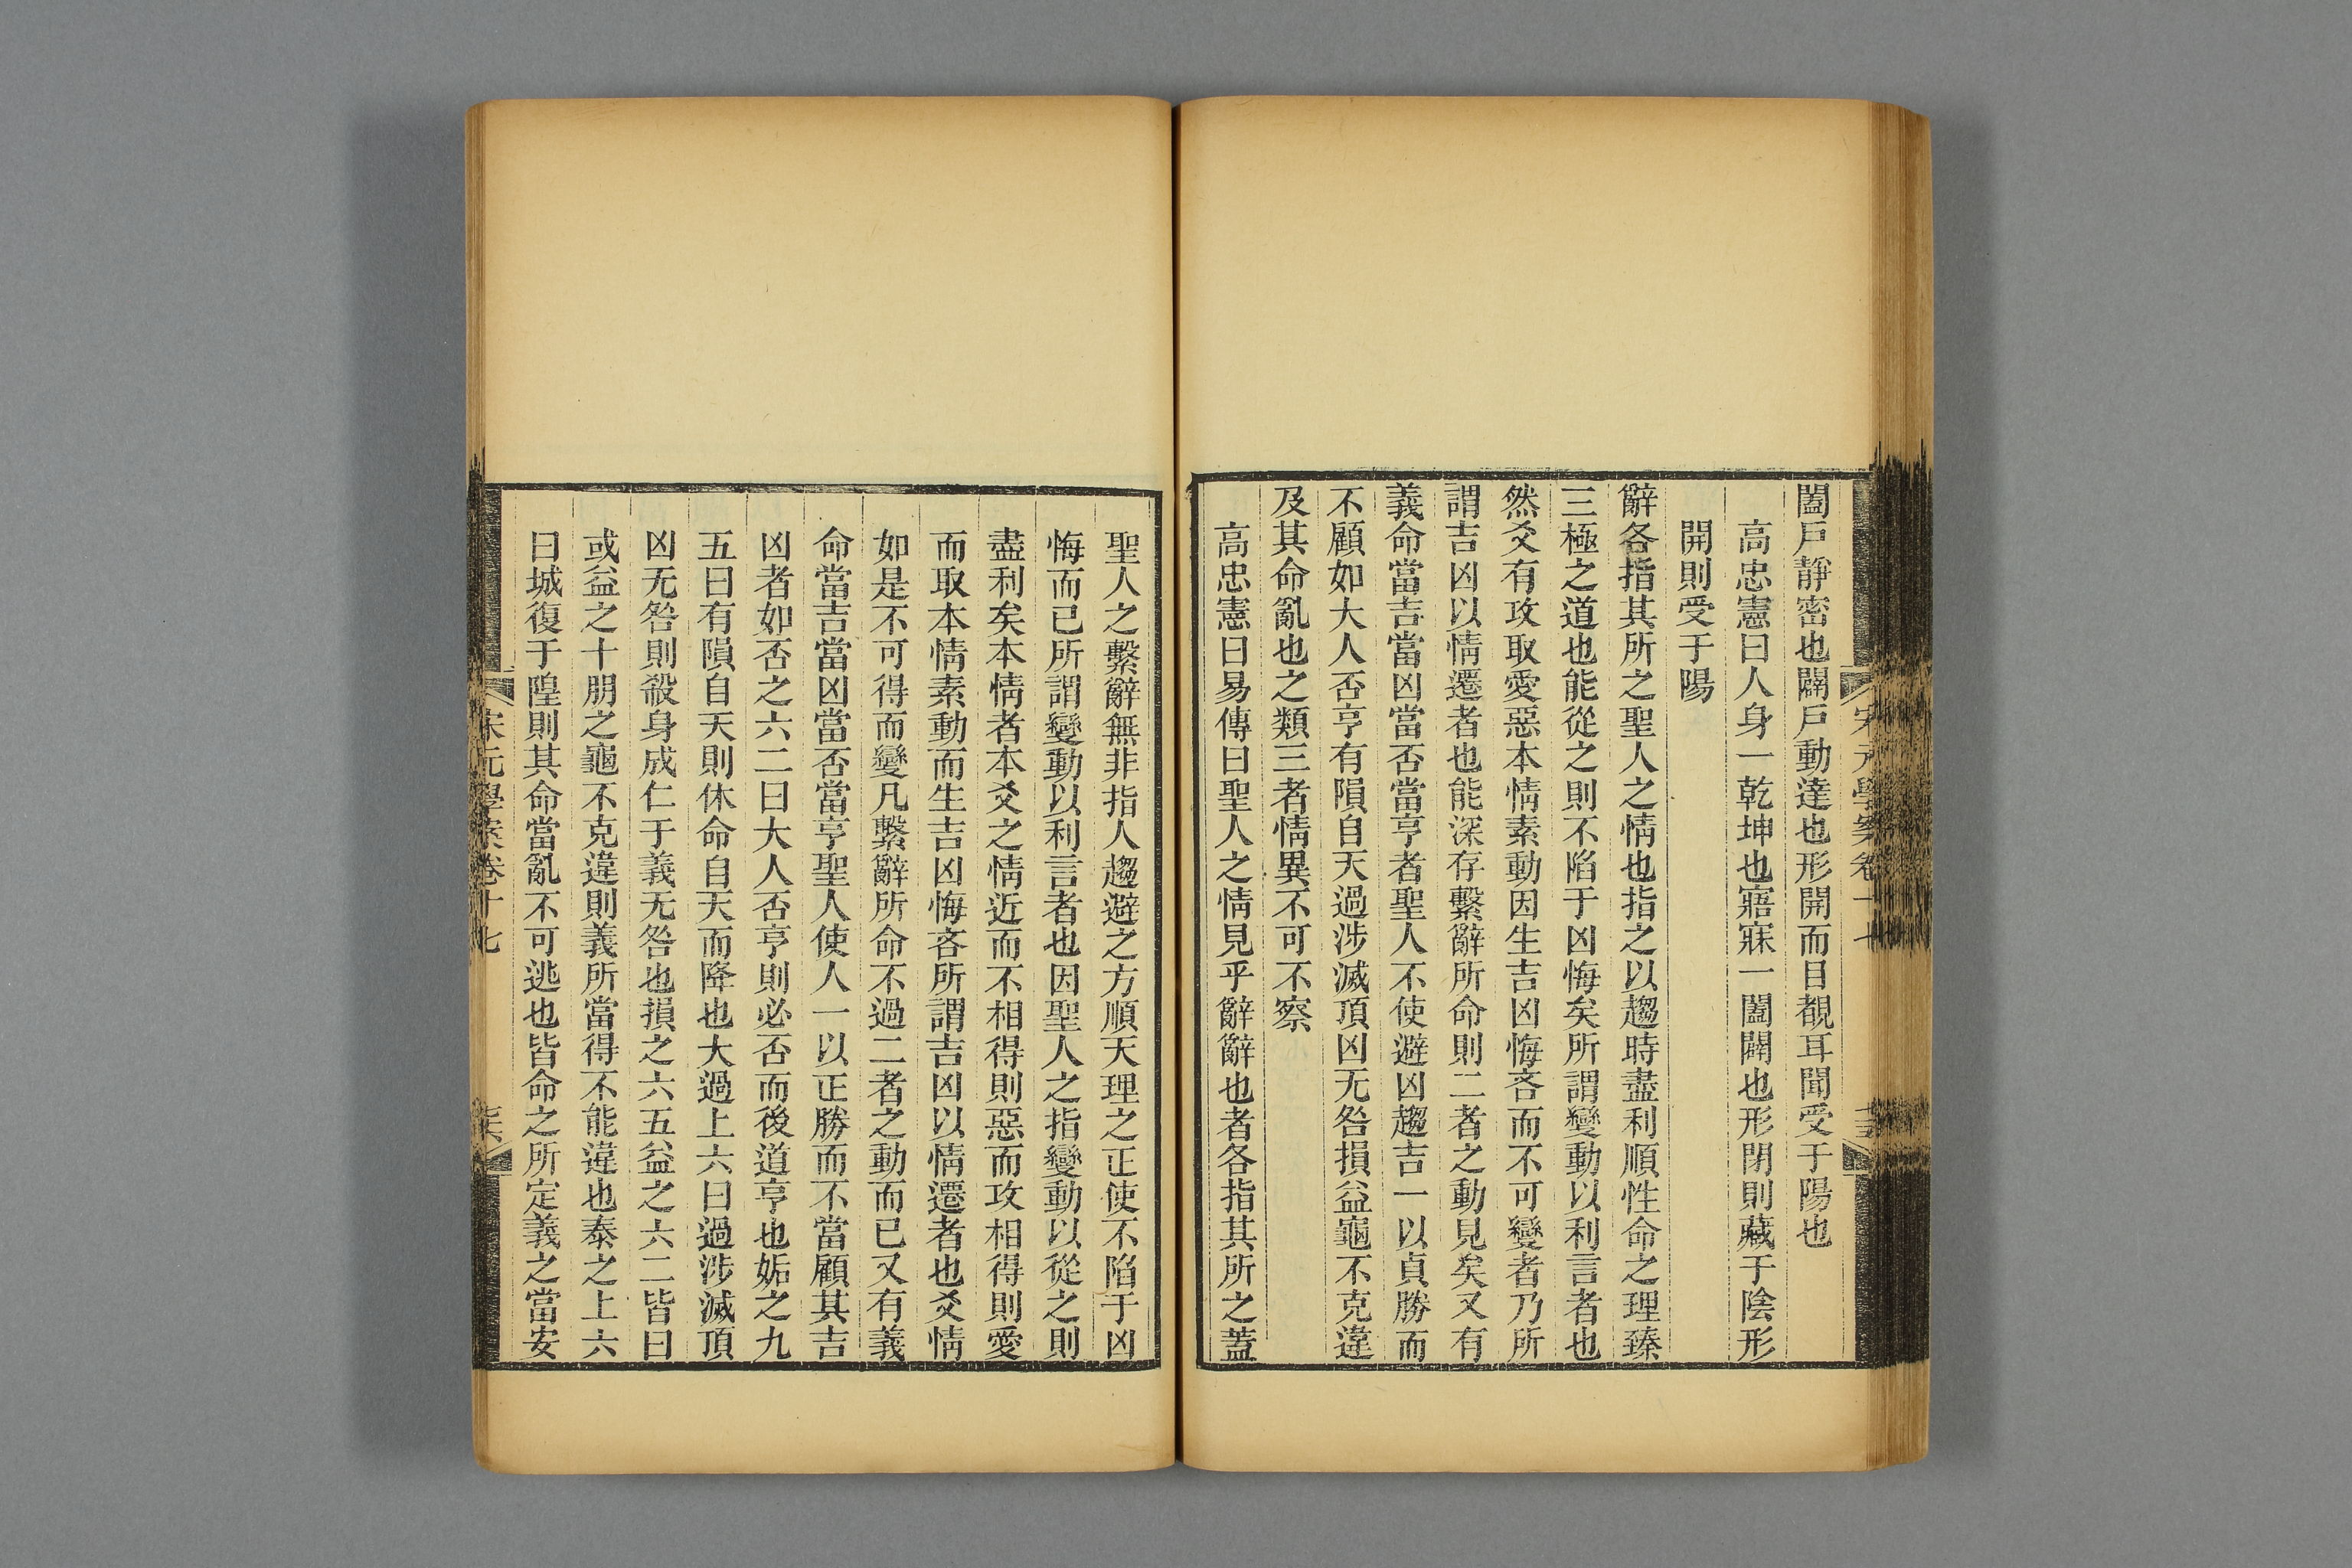 闔戶靜密也闢戶動達也形開而目覩耳聞受于陽也
高忠憲曰人身一乾坤也寤寐一闔闢也形閉則藏于陰形
開則受于陽
辭各指其所之聖人之情也指之以趨時盡利順性命之理臻
三極之道也能從之則不陷于凶悔矣所謂變動以利言者也
然爻有攻取愛惡本情素動因生吉凶悔吝而不可變者乃所
謂吉凶以情遷者也能深存繫辭所命則二者之動見矣又有
義命當吉當凶當否當亨者聖人不使避凶趨吉一以貞勝而
不顧如大人否亨有隕自天過涉滅頂凶无咎損益龜不克違
及其命亂也之類三者情異不可不察
高忠憲曰易傳曰聖人之情見乎辭辭也者各指其所之蓋
聖人之繫辭無非指人趨避之方順天理之正使不陷于凶
悔而已所謂變動以利言者也因聖人之指變動以從之則
盡利矣本情者本爻之情近而不相得則惡而攻相得則愛
而取本情素動而生吉凶悔吝所謂吉凶以情遷者也爻情
如是不可得而變凡繫辭所命不過二者之動而已又有義
命當吉當凶當否當亨聖人使人一以正勝而不當顧其吉
凶者如否之六二曰大人否亨則必否而後道亨也姤之九
五曰有隕自天則休命自天而降也大過上六曰過涉滅頂
凶无咎則殺身成仁于義无咎也損之六五益之六二皆曰
或益之十朋之龜不克違則義所當得不能違也泰之上六
曰城復于隍則其命當亂不可逃也皆命之所定義之當安
宋元學案卷十七